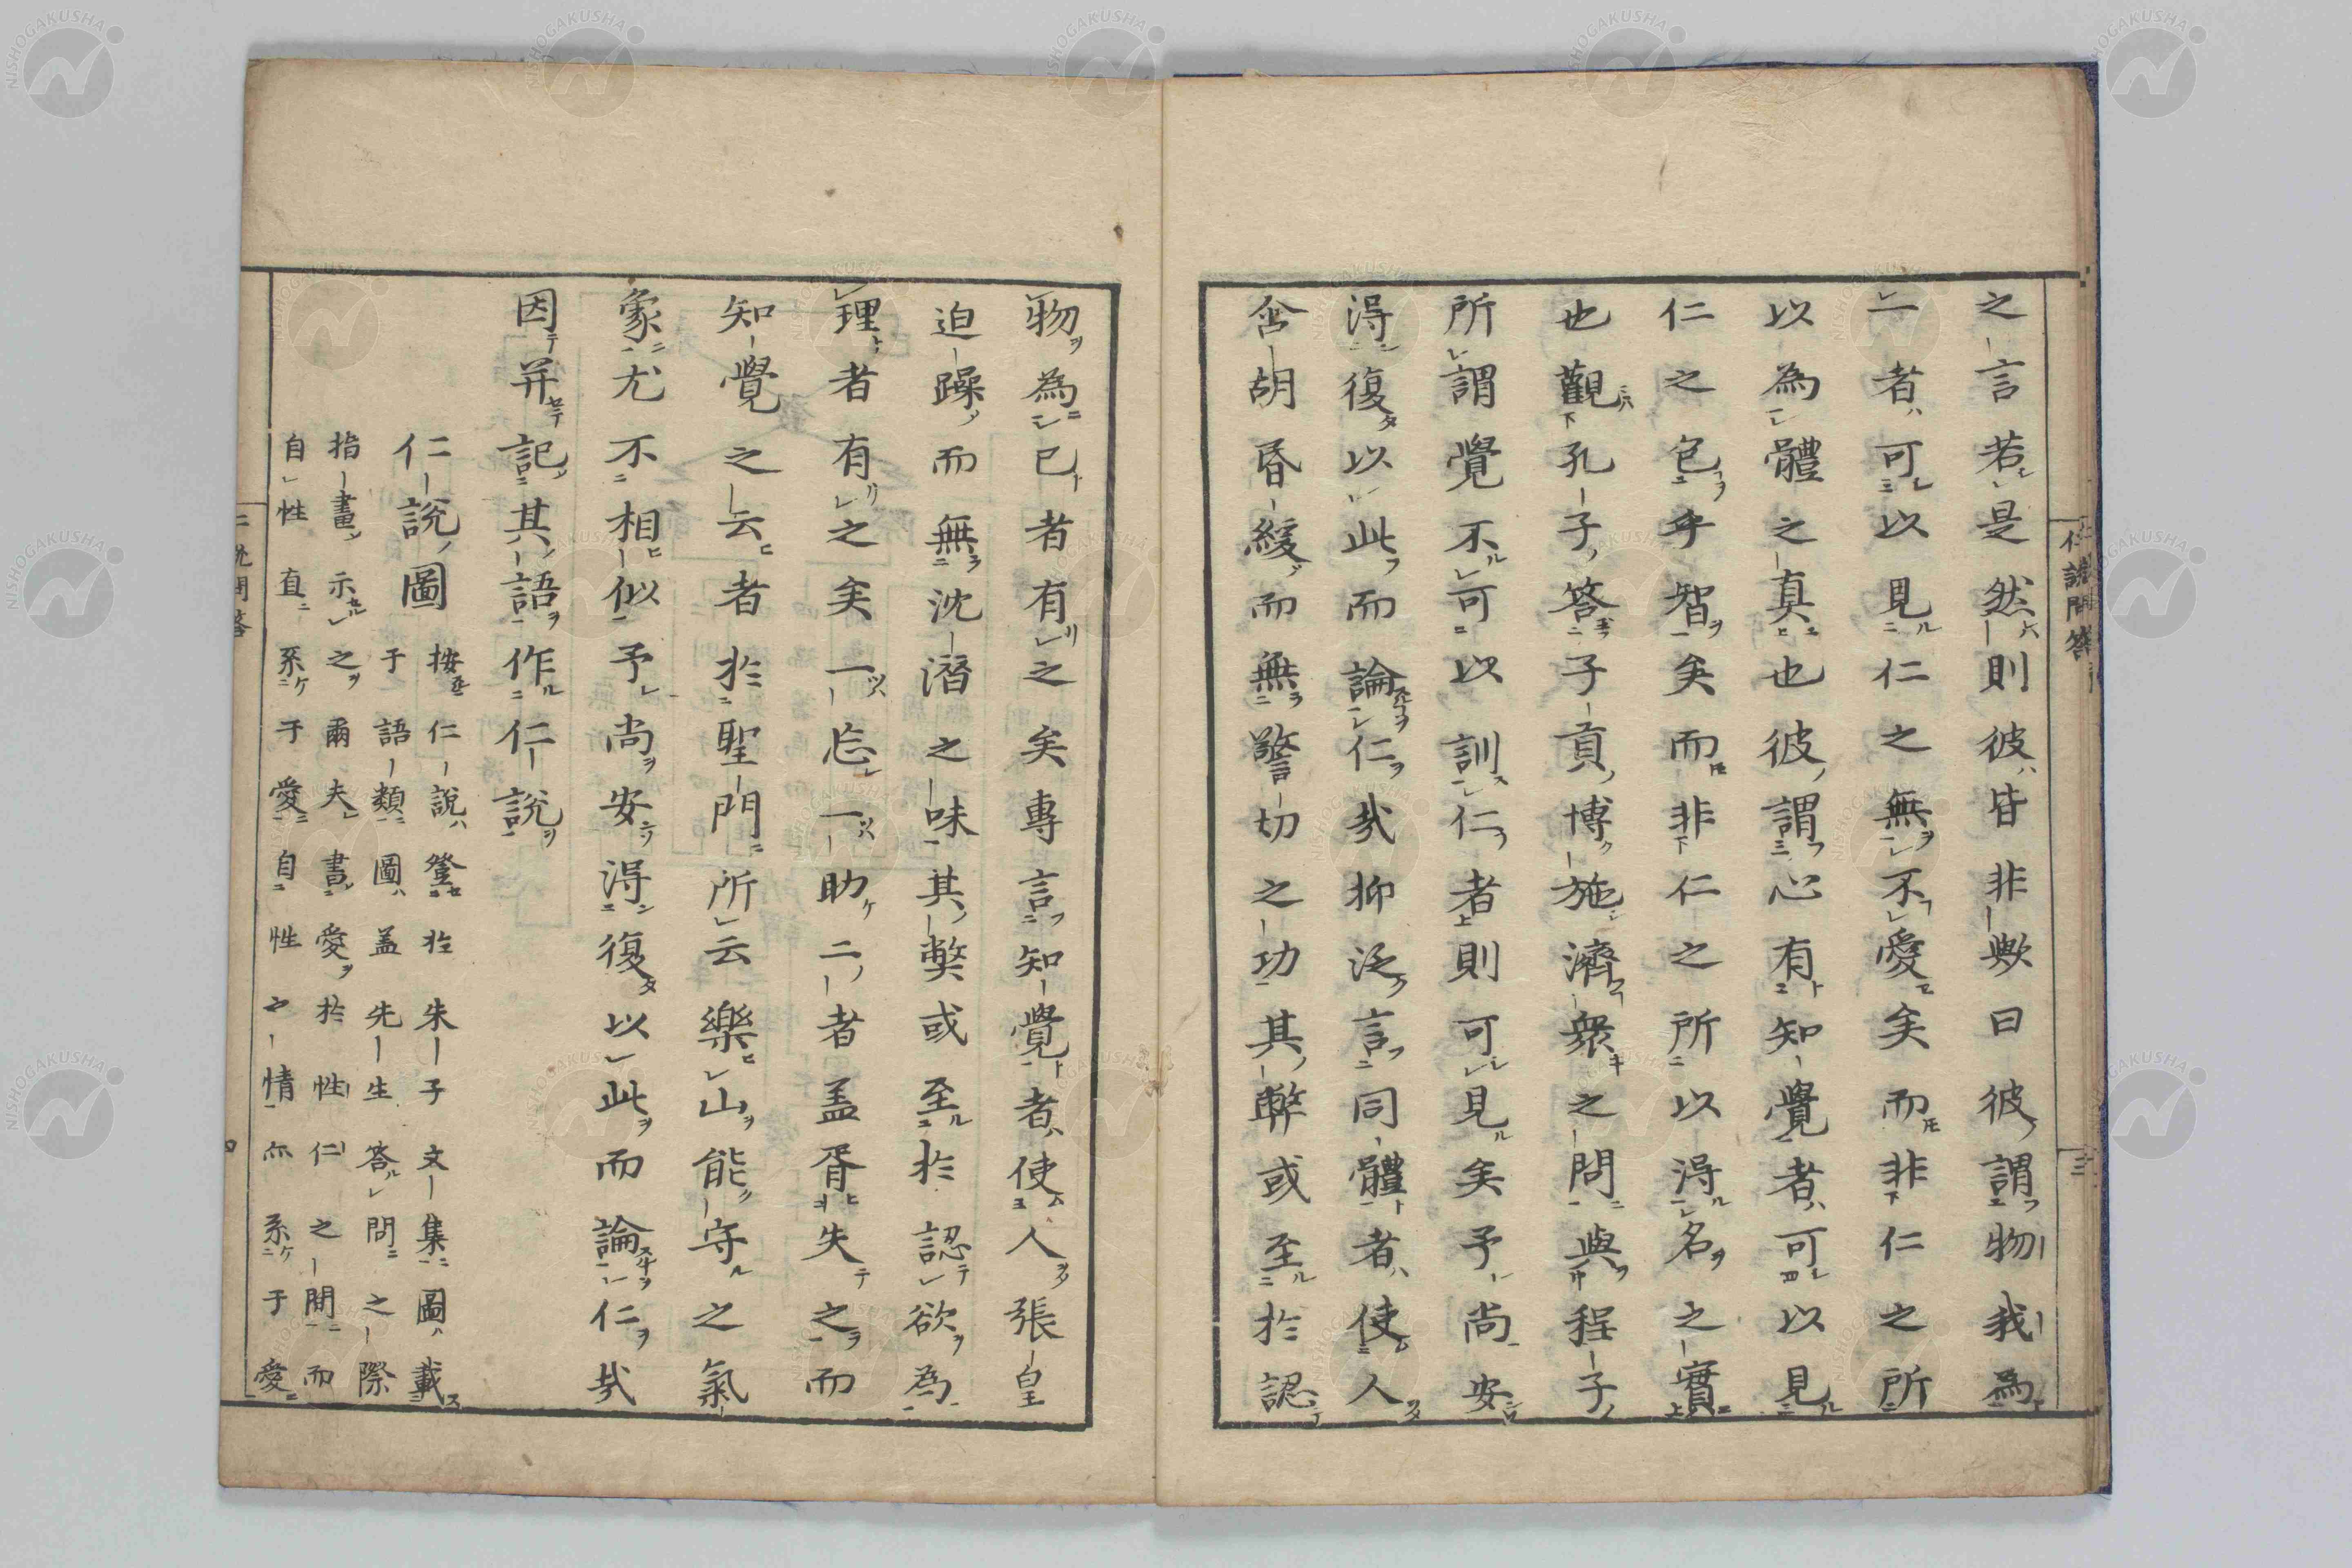 之言若是然則彼皆非歟曰彼謂物我為
一者可以見仁之無不愛矣而非仁之所
以為體之真也彼謂心有知覺者可以見
仁之包乎智矣而非仁之所以得名之實
也觀孔子答子貢博施濟衆之問與程子
所謂覺不可以訓仁者則可見矣予尚安
得復以此而論仁哉抑泛言同體者使人
含胡昏緩而無警切之功其弊或至於認
物為己者有之矣專言知覺者使人張皇
迫躁而無沈潛之味其弊或至於認欲為
理者有之矣一忘一助二者蓋胥失之而
知覺之云者於聖門所云樂山能守之氣
象尤不相似予尚安得復以此而論仁哉
因并記其語作仁說
仁說圖
按仁說登於朱子文集圖載
于語類圖蓋先生答問之際
指畫示之爾夫畫愛於性仁之間而
自性直系于愛自性之情亦系于愛
仁說問答
三
NISHOGAKUSHA